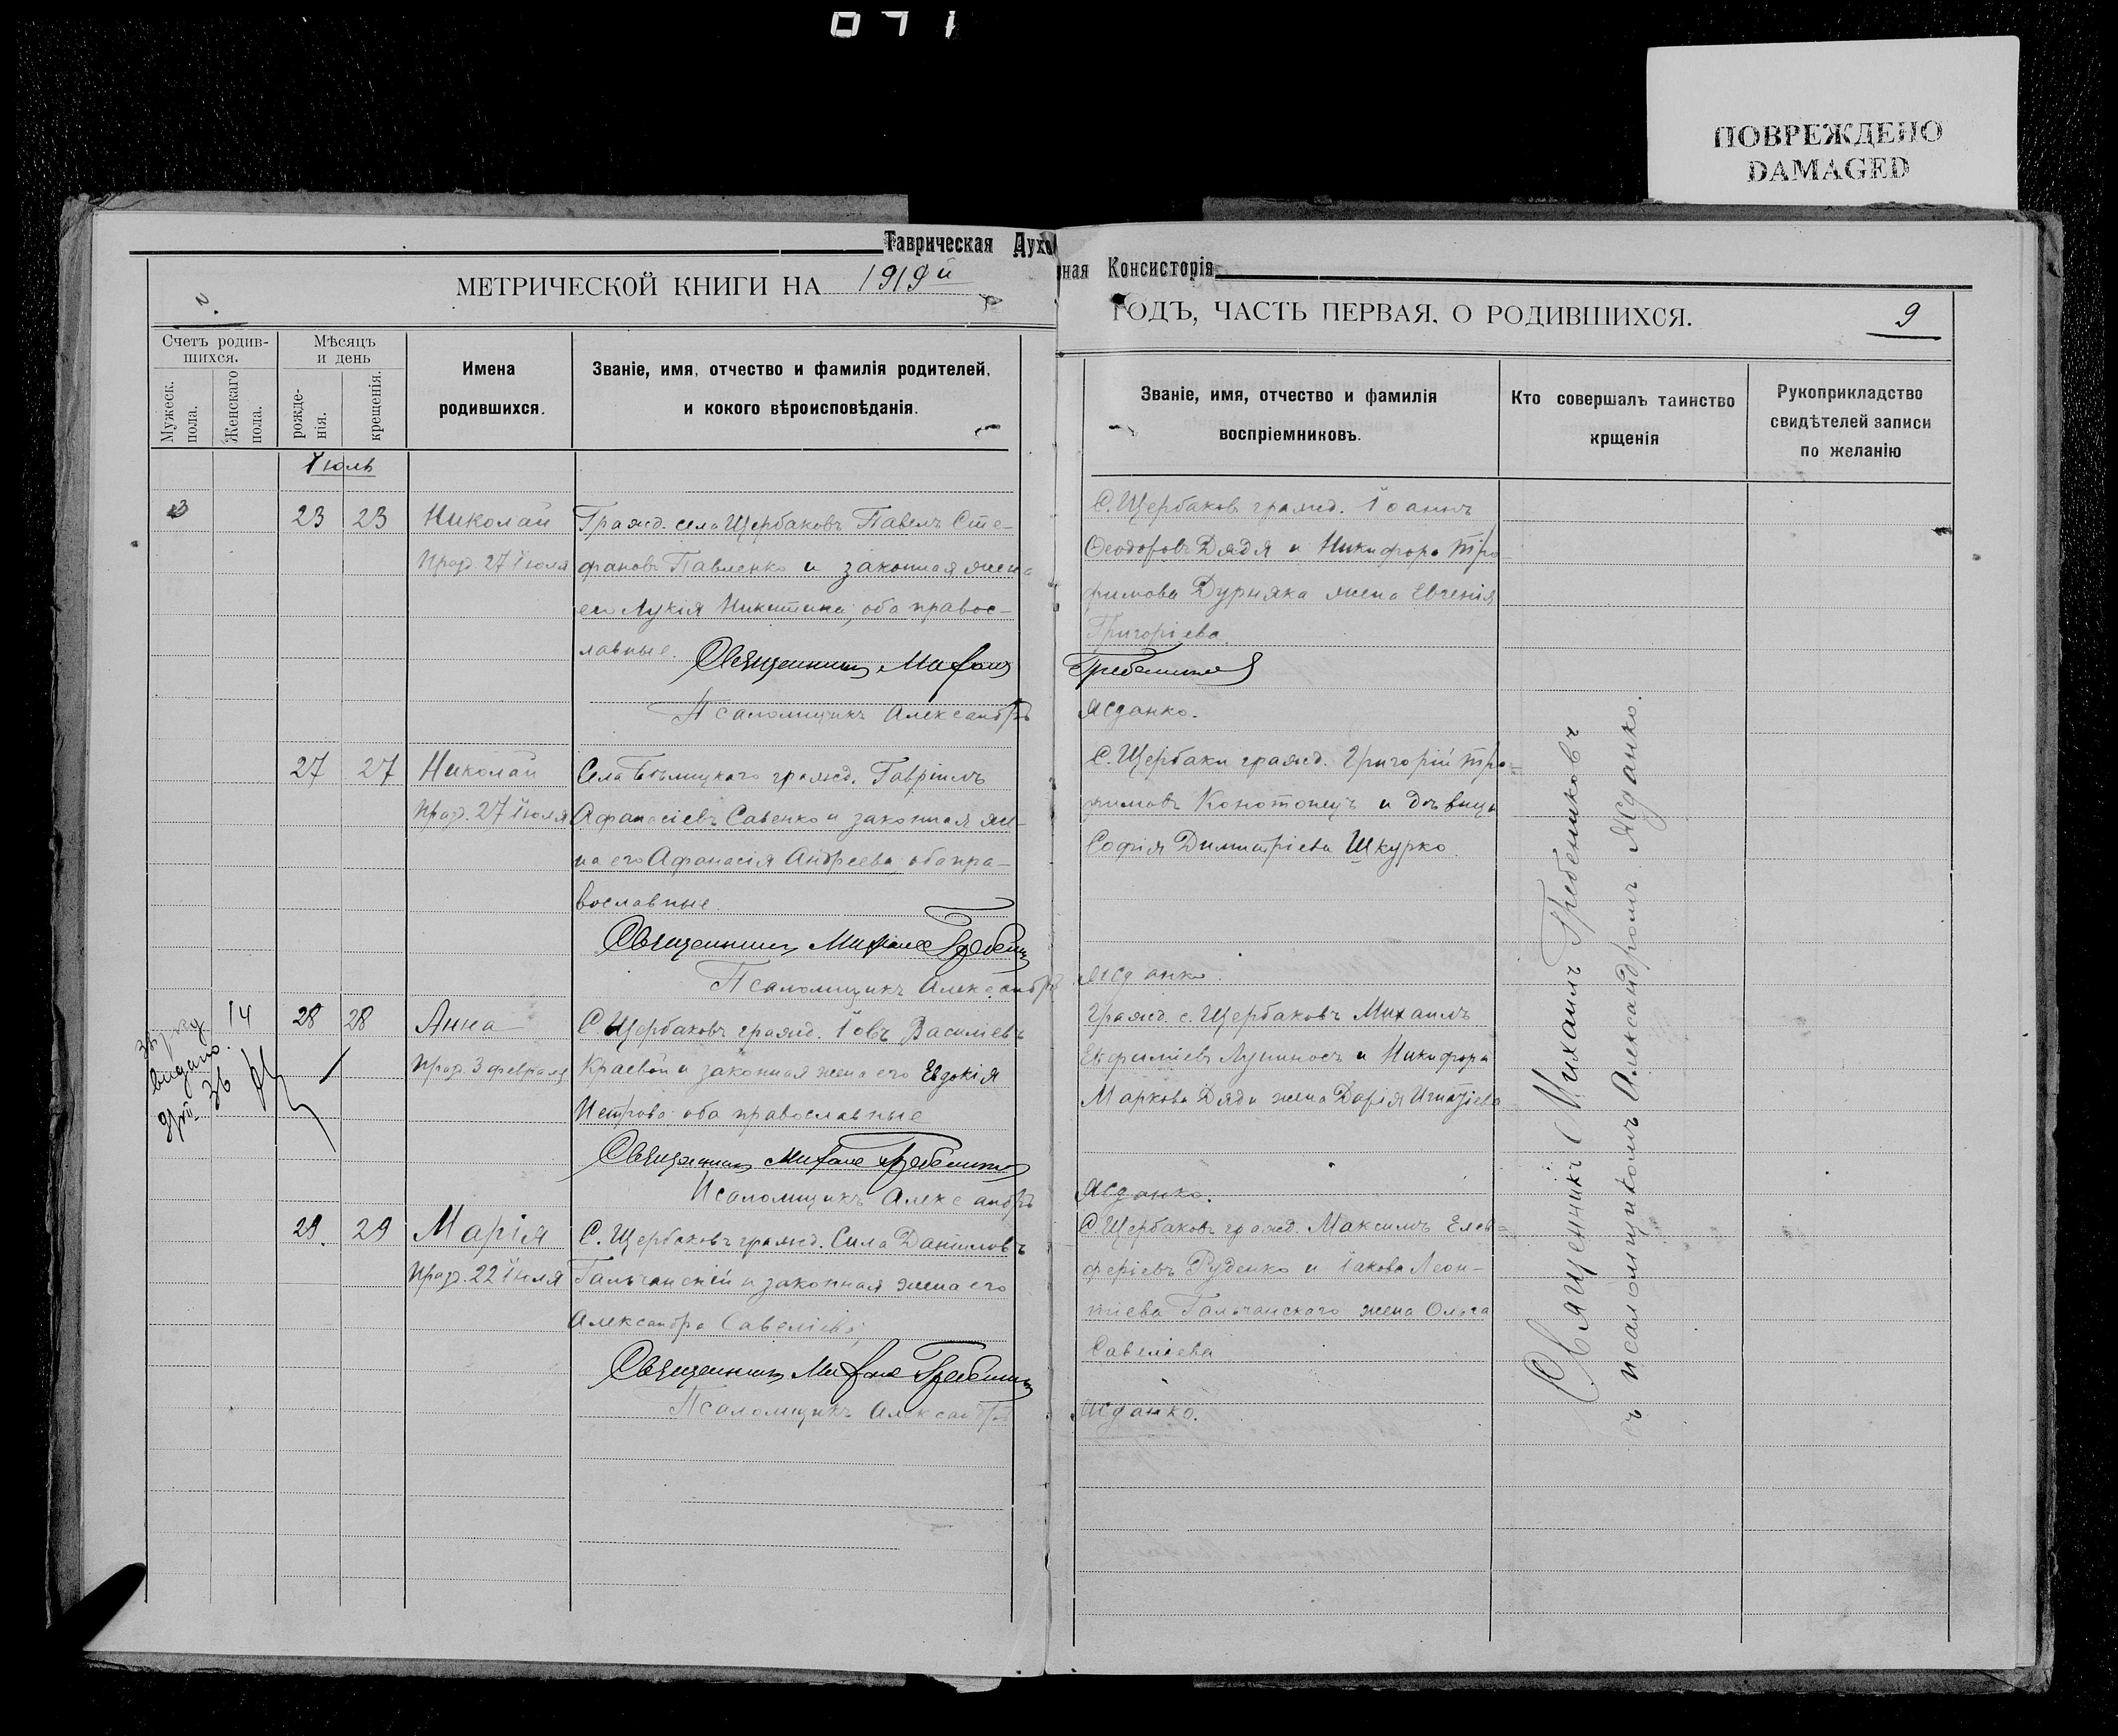 071
ПОВРЕЖДЕНО
DAMAGED
Таврическая Духо
ная Консисторія
МЕТРИЧЕСКОЙ КНИГИ НА 1919й
ГОДЪ, ЧАСТЬ ПЕРВАЯ, О РОДИВШИХСЯ.
9
Счетъ родив-
шихся.
Мужеск.
пола.
Женскаго
пола.
Мѣсяцъ
и день
рожде-
нія.
крещенія.
Имена
родившихся.
Званіе, имя, отчество и фамилія родителей,
и кокого вѣроисповѣданія.
Званіе, имя, отчество и фамилія
воспріемниковъ.
Кто совершалъ таинство
крщенія
Рукоприкладство
свидѣтелей записи
по желанію
Іюль
23 23 Николай
Празд. 27 Іюля
Гражд. села Щербаковъ Павелъ Сте-
фановъ Павленко и законная жена
его Лукія Никитина, оба правос-
лавные.
Священникъ Михаилъ
Гребенниковъ
Псаломщикъ Александръ
Жданко.
С. Щербаковъ гражд. Іоаннъ
Ѳеодоровъ Дядя и Никифора Тро
фимова Дурняка жена Евгенія
Григоріева.
27 27 Николай
Празд. 27 Іюля
Села Бѣлицкаго гражд. Гавріилъ
Афанасіевъ Савенко и законная же-
на его Афанасія Андреева, оба пра-
вославные.
Священникъ Михаилъ
Псаломщикъ Александръ
Жданко.
С. Щербаки гражд. Григорій Тро=
фимовъ Конотопецъ и дѣвица
Софія Димитріева Шкурко.
14 28 28 Анна
Празд. 3 февраля
С. Щербаковъ гражд. Іовъ Василіевъ
Краевой и законная жена его Евдокія
Петрова, оба православные
Священникъ Михаилъ
Псаломщикъ Александръ
Жданко.
Гражд. с. Щербаковъ Михаилъ
и Никифора
Маркова Дяди жена Дарія Игнатіева
видано
36
29. 29 Марія
Празд. 22 Іюля
С. Щербаковъ гражд. Сила Даниловъ
Гальчанскій и законная жена его
Александра Савеліева;
Священникъ Михаилъ
Псаломщикъ Александръ
Жданко.
С. Щербаковъ гражд. Максимъ Елев=
феріевъ Руденко и Іакова Леон-
тіева Гальчанскаго жена Ольга
Савеліева
Священникъ Михаилъ Гребенниковъ
съ псаломщикомъ Александромъ Жданко.